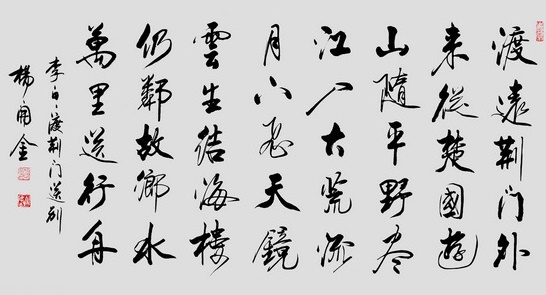 渡遠荆门外
来從楚國遊
山隨平野尽
江入大荒流
月下飛天鏡
雲生结海楼
仍鄰故鄉水
萬里送行舟
李白、渡荆门送别
楊金